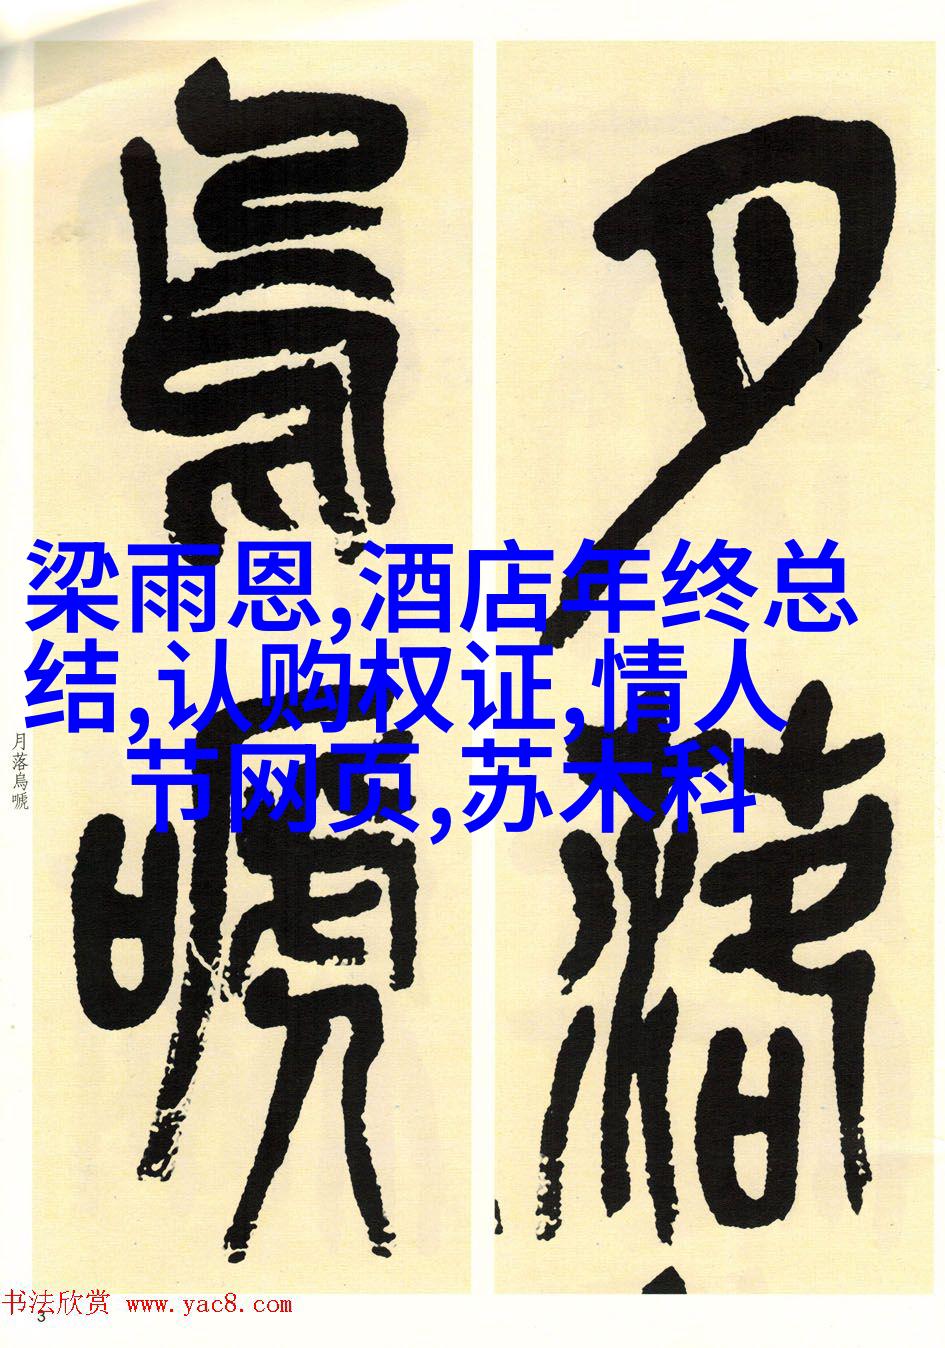 月落
烏嗁
梁雨恩,酒店年终总
结,认购权证,情人
节网页,苏木科
月落烏嗁
书法欣赏 www.yac8.com
3